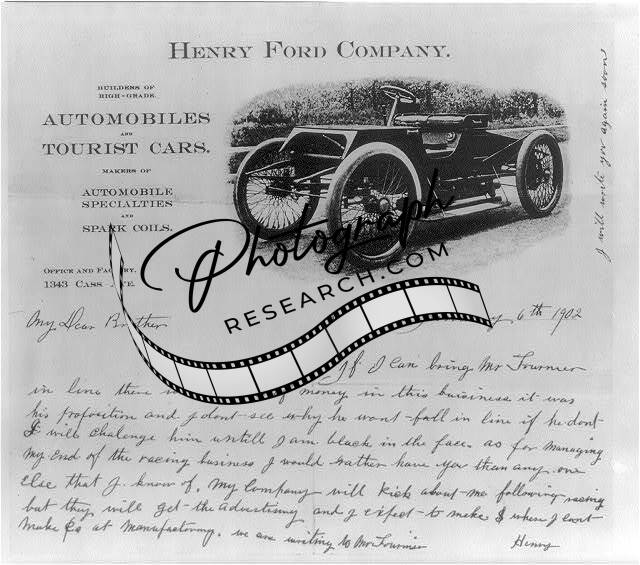 HENRY FORD COMPANY.
BUILDERS OF
HIGH-GRADE
AUTOMOBILES
AND
TOURIST CARS.
MAKERS OF
AUTOMOBILE
SPECIALTIES
AND
SPARK COILS.
OFFICE AND FACTORY,
1343 CASS AVE.
I will write you again soon
Photograph
RESEARCH.COM
6th 1902
My Dear Brother
If I can bring Mr Fournier
in line there money in this business it was
his proposition and I dont see why he wont fall in line if he dont
I will chalenge him untill I am black in the face. as for managing
my end of the racing business I would rather have you than any one
else that I know of. My Company will kick about me following racing
but they will get the Advertising and I expect to make $ where I cant
make ¢s at Manufacturing. we are writing to Mr Fournier
Henry